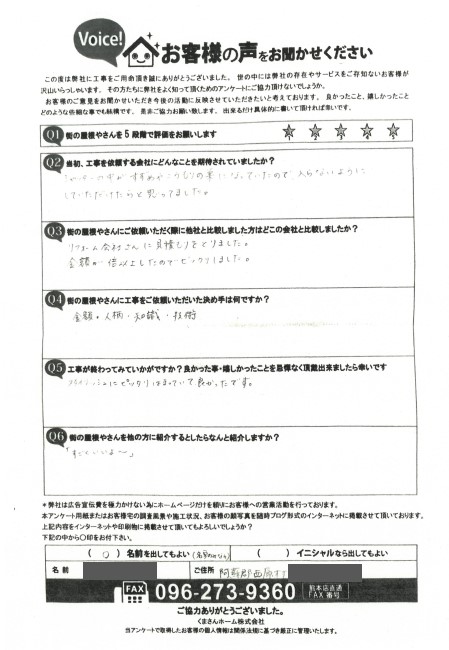 Voice!
お客様の声をお聞かせください
この度は弊社に工事をご用命頂き誠にありがとうございました。 世の中には弊社の存在やサービスをご存知ないお客様が
沢山いらっしゃいます。その方たちに弊社をよく知って頂くためのアンケートにご協力頂けないでしょうか。
お客様のご意見をお聞かせいただき今後の活動に反映させていただきたいと考えております。 良かったこと、嬉しかったこと
どのような些細な事でも結構です。 是非ご協力お願い致します。 出来るだけ具体的に書いて頂ければ幸いです。
Q1 街の屋根やさんを5段階で評価をお願いします
1 2 3 4 5
Q2 当初、工事を依頼する会社にどんなことを期待されていましたか?
の中がすずめやこうもりの巣になっていたので、入らないように
していただけたらと思ってました。
Q3 街の屋根やさんにご依頼いただく際に他社と比較しました方はどこの会社と比較しましたか?
リフォーム会社さんに見積りをとりました。
金額が倍以上したのでビックリしました。
Q4 街の屋根やさんに工事をご依頼いただいた決め手は何ですか?
金額・人柄・知識・技術
Q5 工事が終わってみていかがですか?良かった事・嬉しかったことを忌憚なく頂戴出来ましたら幸いです
にピッタリはまっていて良かったです。
Q6 街の屋根やさんを他の方に紹介するとしたらなんと紹介しますか?
「すごくいいよ~」
*弊社は広告宣伝費を極力かけない為にホームページだけを頼りにお客様への営業活動を行っております。
本アンケート用紙またはお客様宅の調査風景や施工状況、お客様の顔写真を随時ブログ形式のインターネットに掲載させて頂いております。
上記内容をインターネットや印刷物に掲載させて頂いてもよろしいでしょうか?
下記の中から〇印をお付下さい。
( 〇 ) 名前を出してもよい ( ) イニシャルなら出してもよい
名前 ご住所 阿蘇郡西原村
FAX 096-273-9360 熊本店直通 FAX番号
ご協力ありがとうございました。
くまさんホーム株式会社
当アンケートで取得したお客様の個人情報は関係法規に基づき厳正に管理いたします。